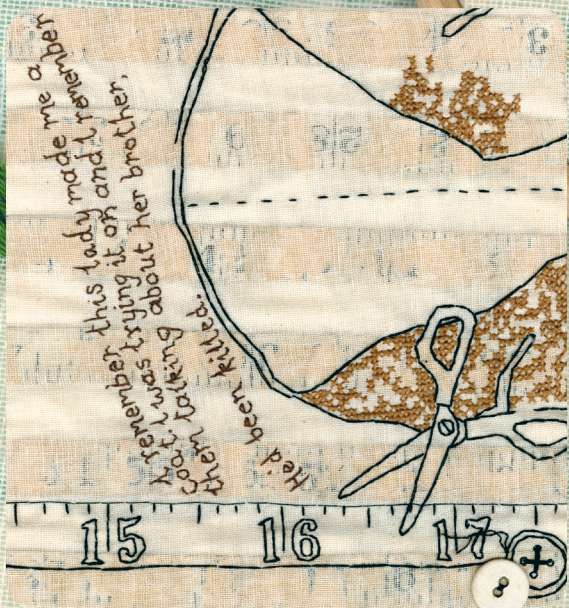 I remember this lady made me a
coat. I was trying it on and I remember
them talking about her brother.
He'd been killed.
15 16 17